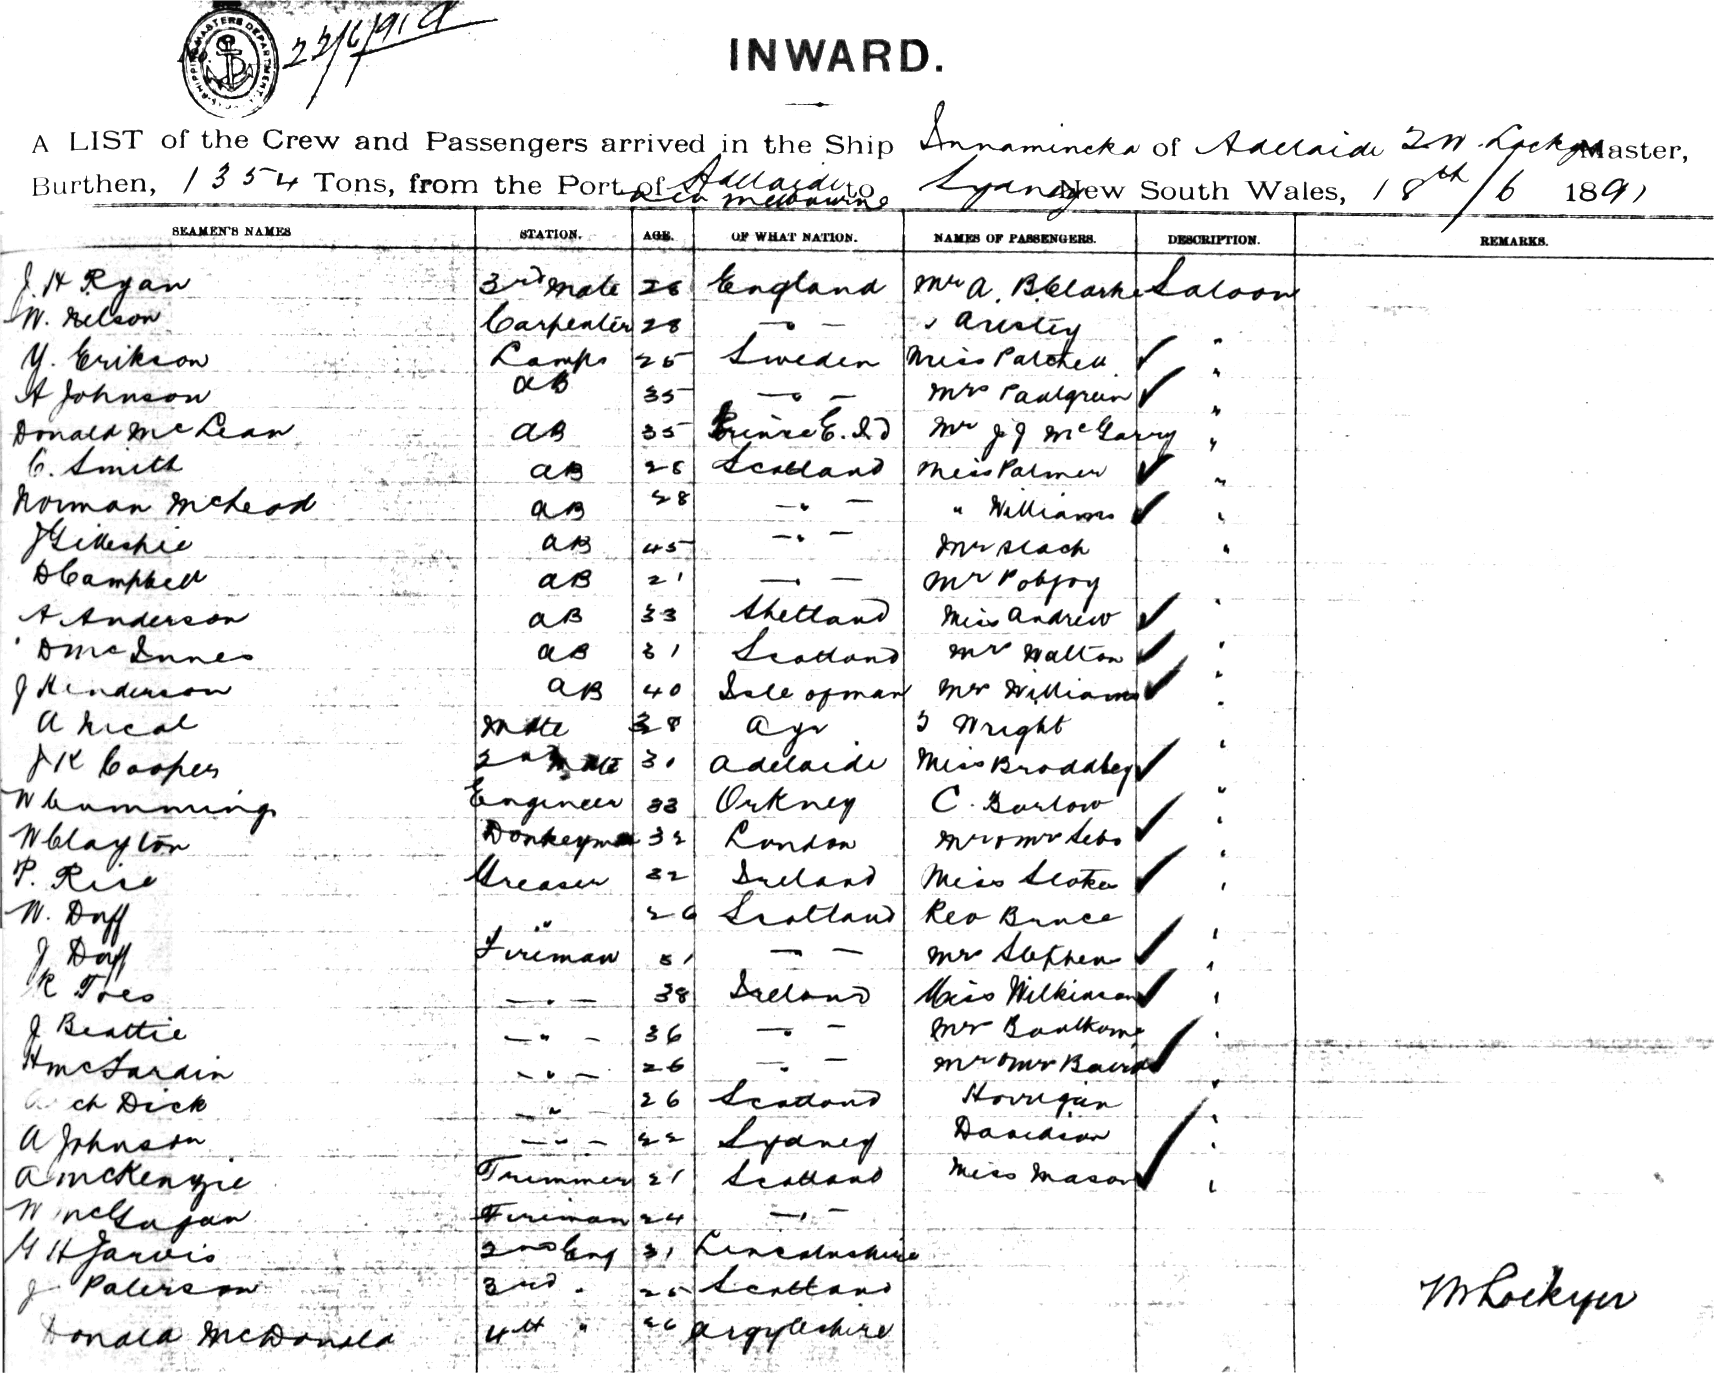 22/6/91
INWARD.
A LIST of the Crew and Passengers arrived in the Ship Innamincka of Adelaide Master,
Burthen, 1354 Tons, from the Port of Adelaide via Melbourne to Sydney New South Wales, 18th/6 1891
SEAMEN'S NAMES STATION. AGE. OF WHAT NATION. NAMES OF PASSENGERS. DESCRIPTION. REMARKS.
J. H Ryan 3rd Mate England Mr A. B. Clarke Saloon
W. Nelson Carpenter 28 — " — "
Y. Erikson Lamps 25 Sweden Miss Patchell ✓ "
A Johnson AB 35 — " — Mrs ✓ "
Donald McLean AB 35 Prince E. Id Mr J J McGarry "
C. Smith AB Scotland Miss Palmer ✓ "
Norman McLeod AB 28 — " — " Williams ✓ "
J Gilleshie AB 45 — " — Mr "
D Campbell AB 21 — " — Mr Pobjoy
A Anderson AB 33 Shetland Miss Andrew ✓ "
D McInnes AB 31 Scotland Mrs Walton ✓ "
J Henderson AB 40 Isle of Man Mrs Williams ✓ "
A Nicol Mate 38 Ayr Wright "
J K Cooper 2nd Mate 31 Adelaide Miss ✓ "
W Cumming Engineer 33 Orkney C. Barlow "
W Clayton Donkeyman 32 London Mr & Mrs ✓ "
P. Rice Greaser 32 Ireland Miss ✓ "
W. Duff " 26 Scotland Rev Bruce "
J Duff Fireman 31 — " — Mrs Stephen ✓ "
R 38 Ireland Miss Wilkinson ✓ "
J Beattie — " — 36 — " — Mr "
H — " — 26 — " — Mr & Mrs Baird ✓ "
Arch Dick — " 26 Scotland Horrigan "
A Johnson — " — 22 Sydney Davidson "
A McKenzie Trimmer 21 Scotland Miss Mason ✓ "
W Fireman 24 — " —
G H Jarvis 2nd Eng 31 Lincolnshire
J Paterson 3rd " 25 Scotland
Donald McDonald 4th " 26 Argyleshire
W Lockyer